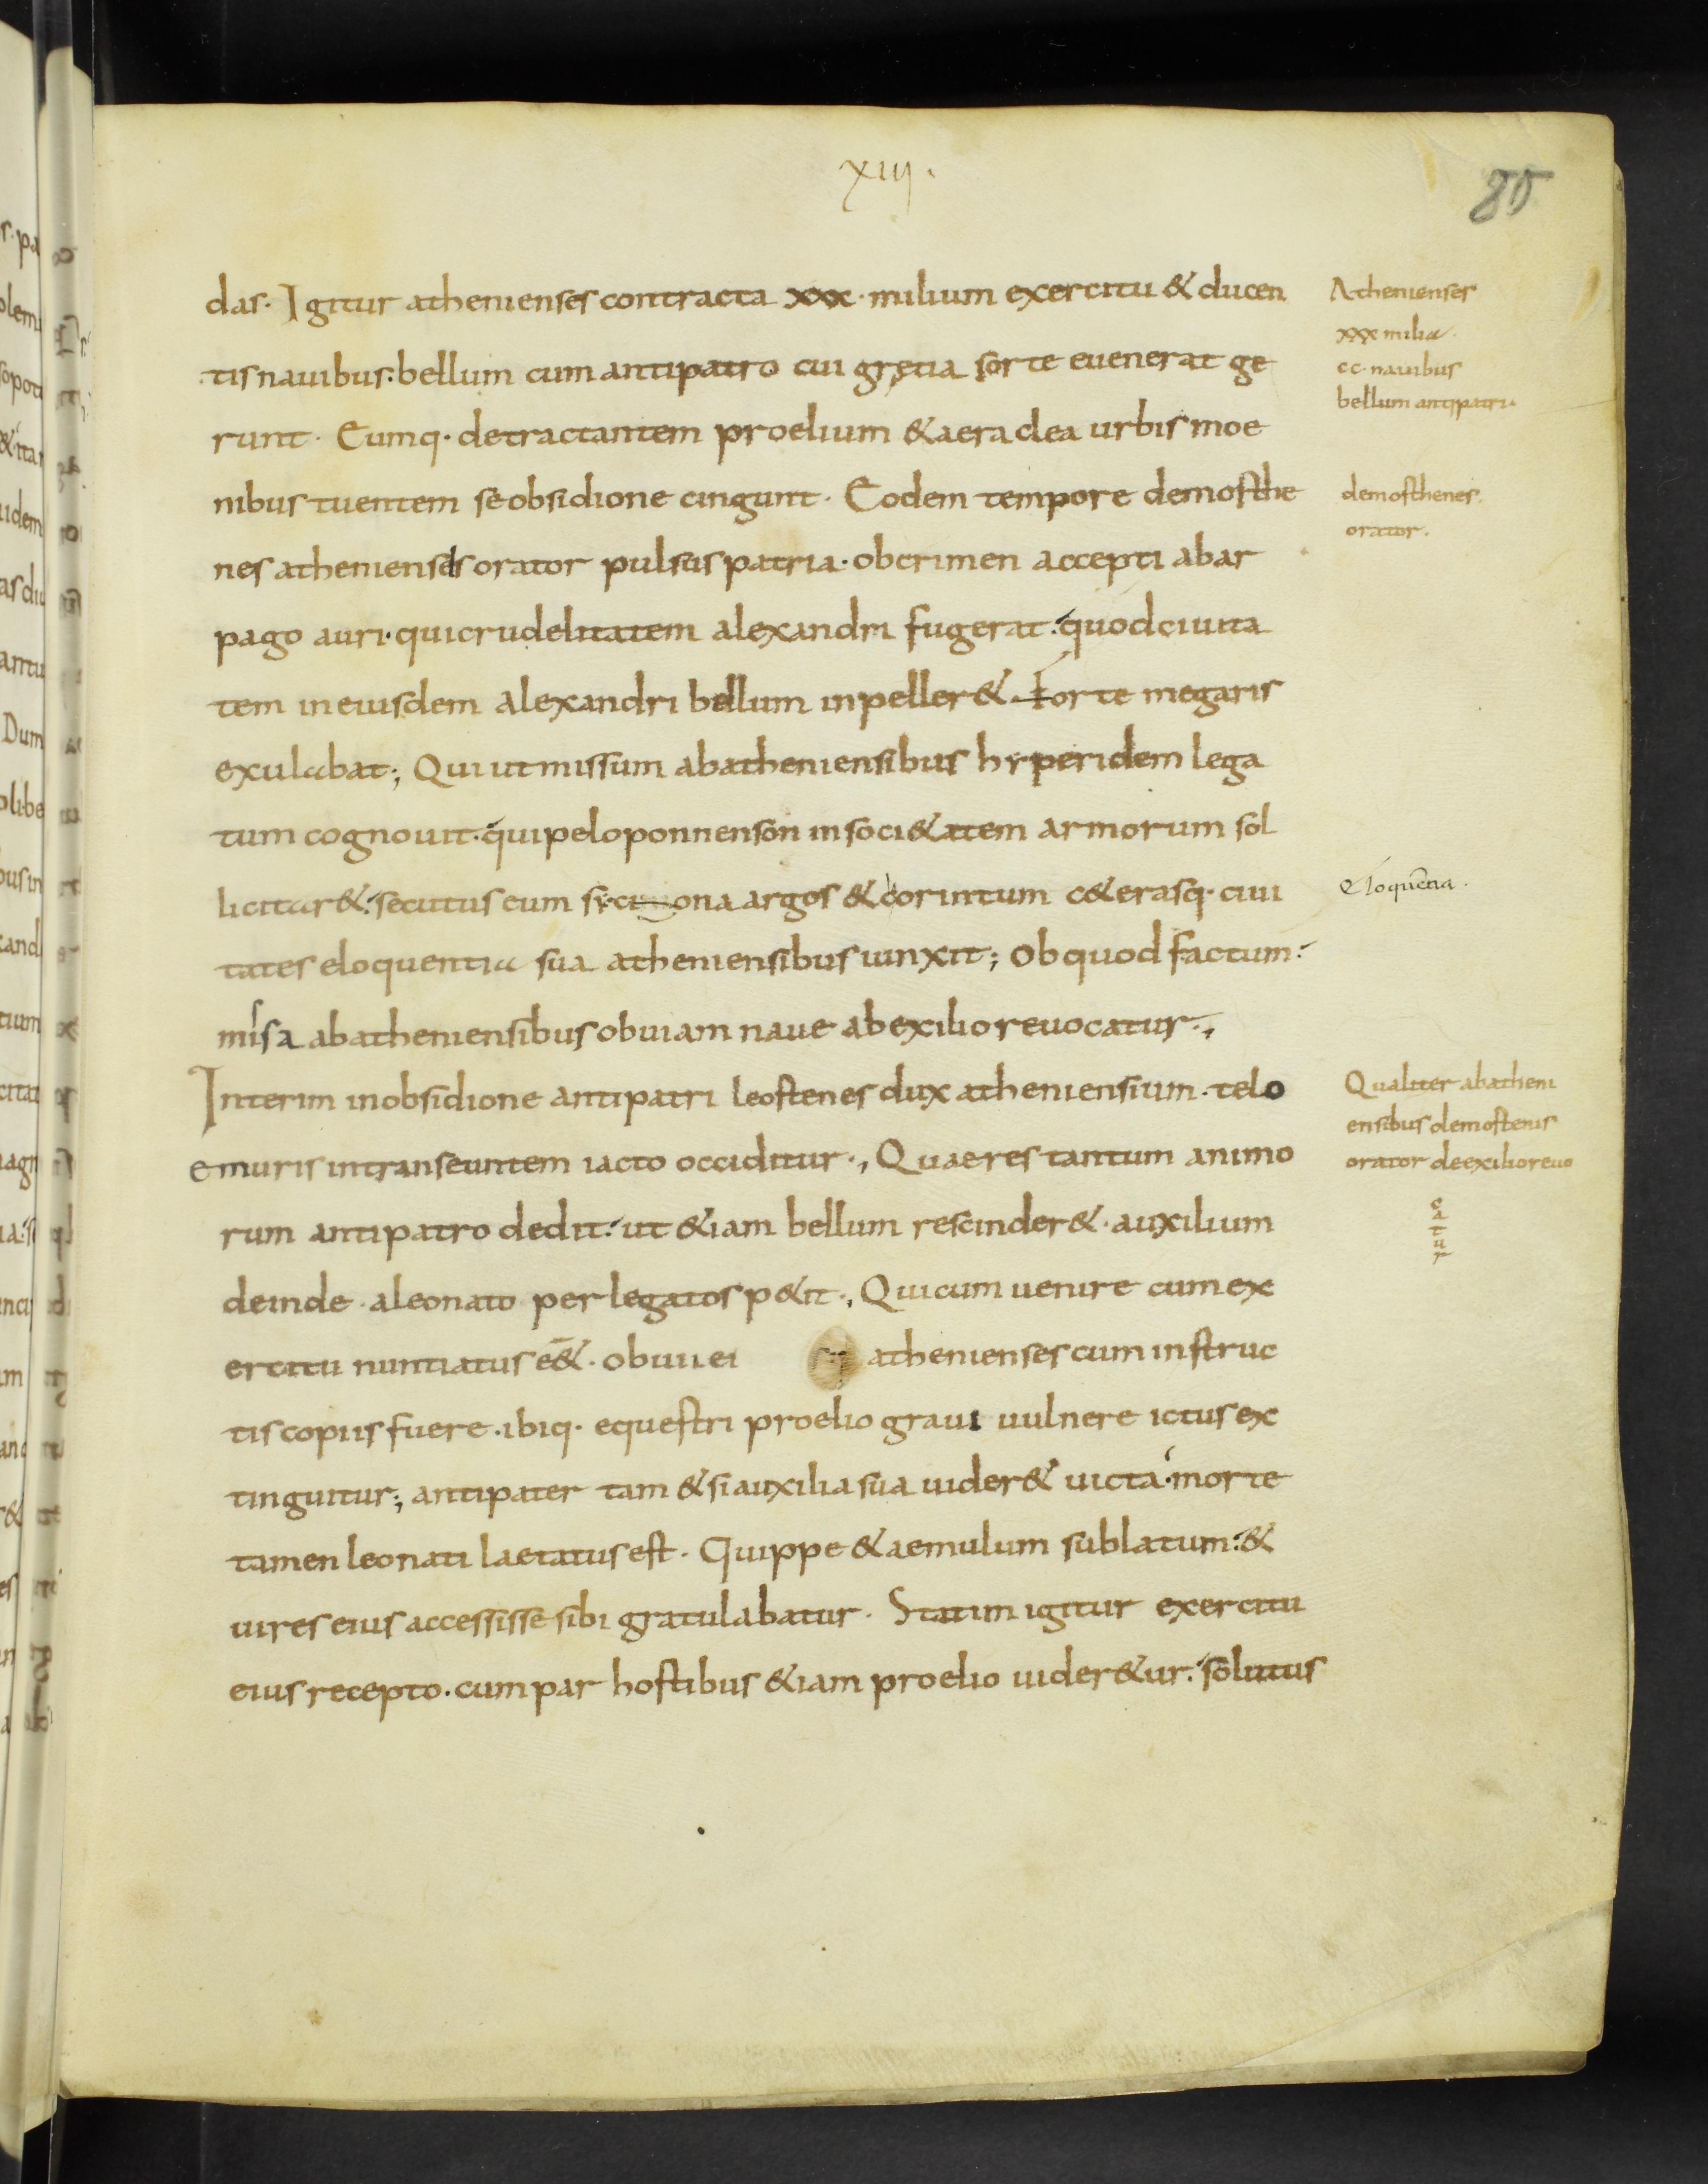 xiij.
85
das. Igitur athenienses contracta xxx. milium exercitu & ducen
tis nauibus: bellum cum antipatro cui gręcia sorte euenerat ge
runt. Eumq. detractantem proelium & aera clea urbis moe
nibus tuentem se obsidione cingunt. Eodem tempore demosthe
nes atheniensis orator pulsus patria. ob crimen accepti ab ar
pago auri. qui crudelitatem alexandri fugerat: quod ciuita
tem in eiusdem alexandri bellum inpeller&. forte megaris
exulabat; Qui ut missum ab atheniensibus hyperidem lega
tum cognouit. qui peloponnenson in soci&atem armorum sol
licitar&: secutus eum sycionona argos & corintum c&erasq. ciui
tates eloquentia sua atheniensibus iunxit; Ob quod factum:
missa ab atheniensibus obuiam naue ab exilio reuocatur.,
Interim in obsidione antipatri leostenes dux atheniensium. telo
e muris in transeuntem iacto occiditur., Quae res tantum animo
rum antipatro dedit: ut &iam bellum rescinder&. auxilium
deinde. a leonato per legatos p&it., Qui cum uenire cum ex
ercitu nuntiatus ēē&. obuii ei athenienses cum instruc
tis copiis fuere. ibiq. equestri proelio graui uulnere ictus ex
tinguitur; antipater tam &si auxilia sua uider& uicta. morte
tamen leonati laetatus est. Quippe & aemulum sublatum: &
uires eius accessisse sibi gratulabatur. Statim igitur exercitu
eius recepto. cum par hostibus &iam proelio uider&ur: solutus
Athenienses
xxx milia.
cc. nauibus
bellum antipatri.
demosthenes.
orator.
Eloquẽtia.
Qualiter ab atheni
ensibus demostenis
orator de exilio reuo
c
a
t
u
r